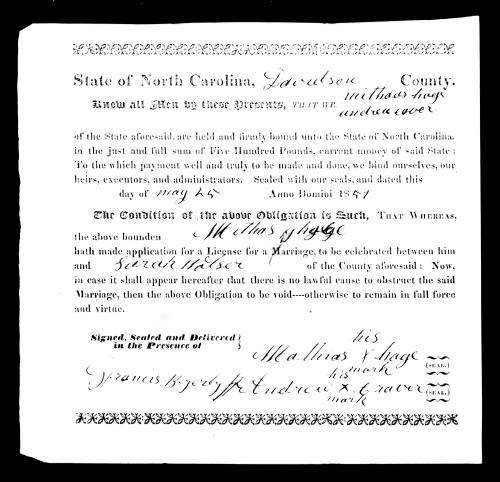 State of North Carolina, Davidson County.
mithaus hage
Know all Men by these Presents, THAT WE
andrew cover
of the State aforesaid, are held and firmly bound unto the State of North Carolina,
in the just and full sum of Five Hundred Pounds, current money of said State:
To the which payment well and truly to be made and done, we bind ourselves, our
heirs, executors, and administrators. Sealed with our seals, and dated this
day of may 25 Anno Domini 1851
The Condition of the above Obligation is Such, THAT WHEREAS,
the above bounden Mithas hage
hath made application for a License for a Marriage, to be celebrated between him
and Sarah of the County aforesaid: Now,
in case it shall appear hereafter that there is no lawful cause to obstruct the said
Marriage, then the above Obligation to be void----otherwise to remain in full force
and virtue.
Signed, Sealed and Delivered }
in the Presence of
his
Mathias X hage (SEAL.)
mark
his
Francis Andrew X Graver (SEAL.)
mark